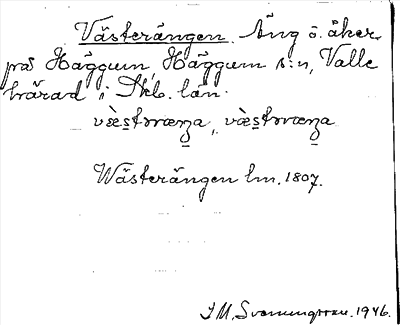 Västerängen. Äng o. åker
på Häggum, Häggum s:n, Valle
härad i Skb. län.
væ̀stəræŋa, væ̀stəræŋa
Wästerängen lm. 1807.
J. M. Svenungsson. 1946.